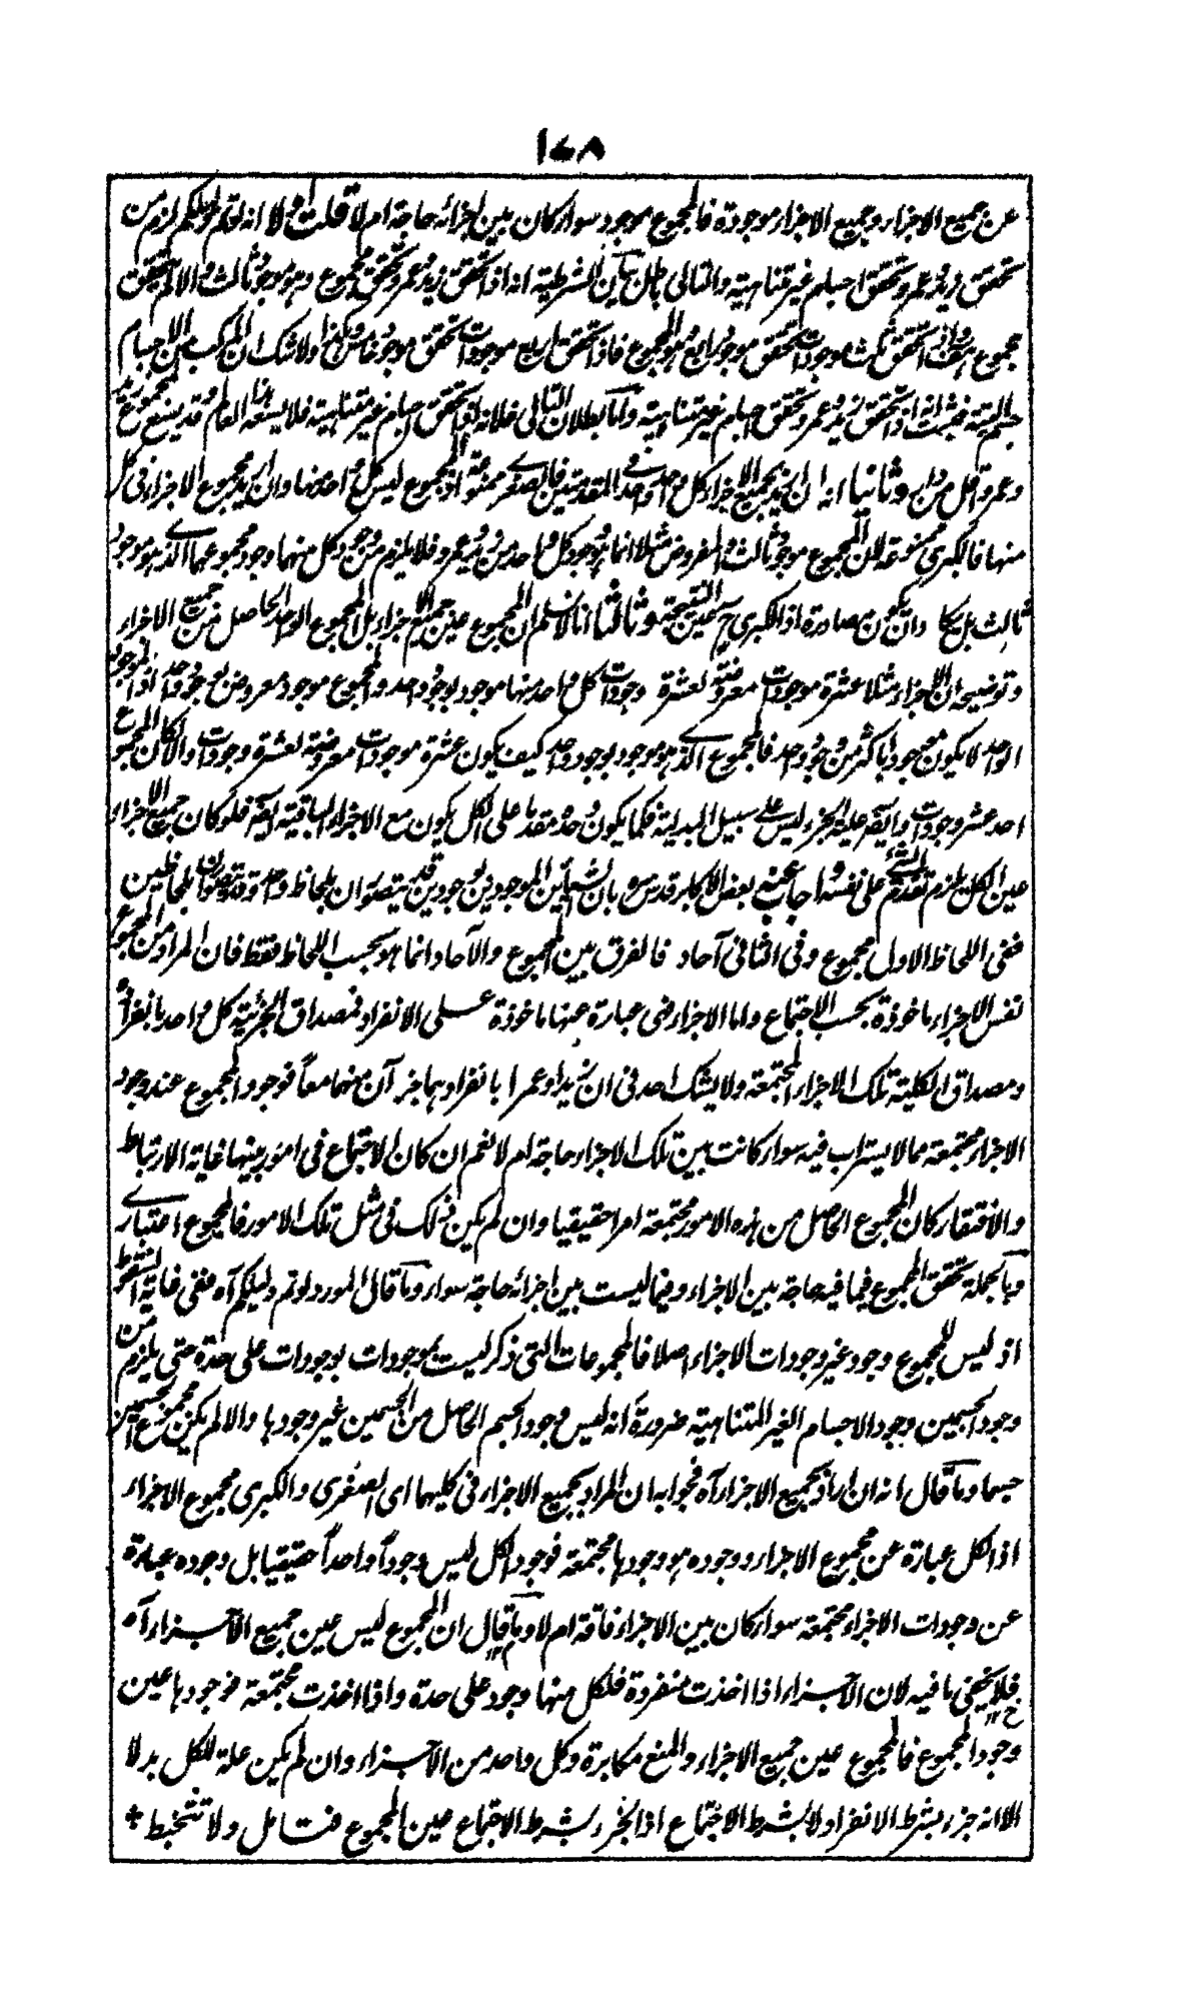 ١٧٨
عن جميع الاجزاء وجميع الاجزاء موجودة فالمجموع موجود سواء كان بين اجزائه حاجة ام لا قلت اولا انه لو تم دليلكم لزم من
تحقق زيد وعمرو تحقق اجسام غير متناهية والتالى باطل بيان الشرطية انه اذا تحقق زيد وعمرو تحقق مجموع وهو موجود ثالث والا لم يتحقق
مجموع اثنين واذا تحقق ثلث موجودات تحقق موجود رابع هو المجموع فاذا تحقق اربع موجودات تحقق موجود خامس وهكذا ولا شك ان المركب من الاجسام
جسم البتة فثبت اذا تحقق زيد وعمرو تحقق اجسام غير متناهية واما بطلان التالى فلانه لو تحقق اجسام غير متناهية فلا يسعه هذا العالم وقد يسع مجموع زيد
وعمرو اقل من وثانيا انه ان اريد بجميع الاجزاء كل واحد واحد فى المقدمتين فالصغرى ممنوعة اذ المجموع ليس كل واحد منها وان اريد مجموع الاجزاء فى كل
منها فالكبرى ممنوعة لان المجموع موجود ثالث والمفروض مثلا انما هو وجود كل واحد من زيد وعمرو فلا يلزم من وجود كل منهما وجود مجموعهما الذى هو موجود
ثالث بل يكاد ان يكون مصادرة اذ الكبرى ح عين النتيجة وثالثا انا لا نسلم ان المجموع عين جميع الاجزاء بل المجموع الواحد الحاصل من جميع الاجزاء
وتوضيحه ان الاجزاء مثلا عشرة موجودات معروضة لعشرة وجودات كل واحد منها موجود بوجود واحد والمجموع موجود معروض لوجود واحد اذ الموجود
الواحد لا يكون موجودا باكثر من وجود واحد فالمجموع الذى هو موجود بوجود واحد كيف يكون عشرة موجودات معروضة لعشرة وجودات والا لكان المجموع
احد عشر وجودات وايضا علية الجزء ليس على سبيل البدلية فكما يكون وحده مقدما على الكل يكون مع الاجزاء الباقية ايضا فلو كان جميع الاجزاء
عين الكل يلزم تقدم الشئ على نفسه واجاب عنه بعض الاكابر قدس سره بان الشيئين الموجودين بوجودين قد يتصوران بلحاظ واحد وقد يتصوران بلحاظين
ففى اللحاظ الاول مجموع وفى الثانى آحاد فالفرق بين المجموع والآحاد انما هو بحسب اللحاظ فقط فان المراد من المجموع
نفس الاجزاء ماخوذة بحسب الاجتماع واما الاجزاء فهى عبارة عنها ماخوذة على الانفراد فمصداق الجزئية كل واحد بانفراده
ومصداق الكلية تلك الاجزاء المجتمعة ولا يشك احد فى ان زيدا وعمرا بانفرادهما جزآن منهما معاً فوجود المجموع عند وجود
الاجزاء مجتمعة مما لا يستراب فيه سواء كانت بين تلك الاجزاء حاجة ام لا نعم ان كان الاجتماع فى امور بينها غاية الارتباط
والافتقار كان المجموع الحاصل من هذه الامور مجتمعة امرا حقيقيا وان لم يكن ذلك فى مثل تلك الامور فالمجموع اعتبارى
وبالجملة تحقق المجموع فيما فيه حاجة بين الاجزاء وفيما ليست بين اجزائه حاجة سواء وما قال المورد لو تم دليلكم آه ففى غاية السقوط
اذ ليس للمجموع وجود غير وجودات الاجزاء اصلا فالمجموعات التى ذكر ليست بموجودات بوجودات على حدة حتى يلزم من
وجود الجسمين وجود الاجسام الغير المتناهية ضرورة انه ليس وجود الجسم الحاصل من الجسمين غير وجودها والا لم يكن مجموع الجسمين
جسما وما قال انه ان اراد بجميع الاجزاء آه فجوابه ان المراد بجميع الاجزاء فى كليهما اى الصغرى والكبرى مجموع الاجزاء
اذ الكل عبارة عن مجموع الاجزاء ووجوده هو وجودها مجتمعة فوجود الكل ليس وجوداً واحداً حقيقيا بل وجوده عبارة
عن وجودات الاجزاء مجتمعة سواء كان بين الاجزاء فاقة ام لا وما قال ان المجموع ليس عين جميع الاجزاء آه
فلا يخفى ما فيه لان الاجزاء اذا اخذت منفردة فلكل منها وجود على حدة واذا اخذت مجتمعة فوجودها عين
وجود المجموع فالمجموع عين جميع الاجزاء والمنع مكابرة وكل واحد من الاجزاء وان لم يكن علة للكل بدلا
الا انه جزء بشرط الانفراد ولا بشرط الاجتماع اذ الجزء بشرط الاجتماع عين المجموع فتامل ولا تتخبط +